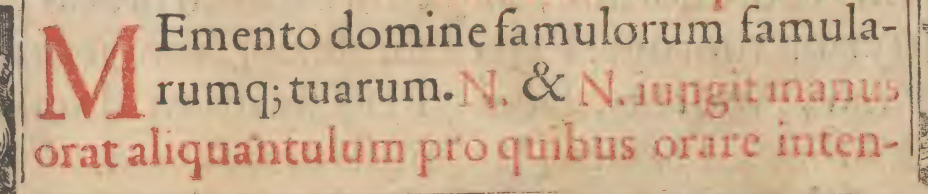 MEmento domine famulorum famula-
rumq; tuarum. N. & N. iungit manus
orat aliquantulum pro quibus orare inten-